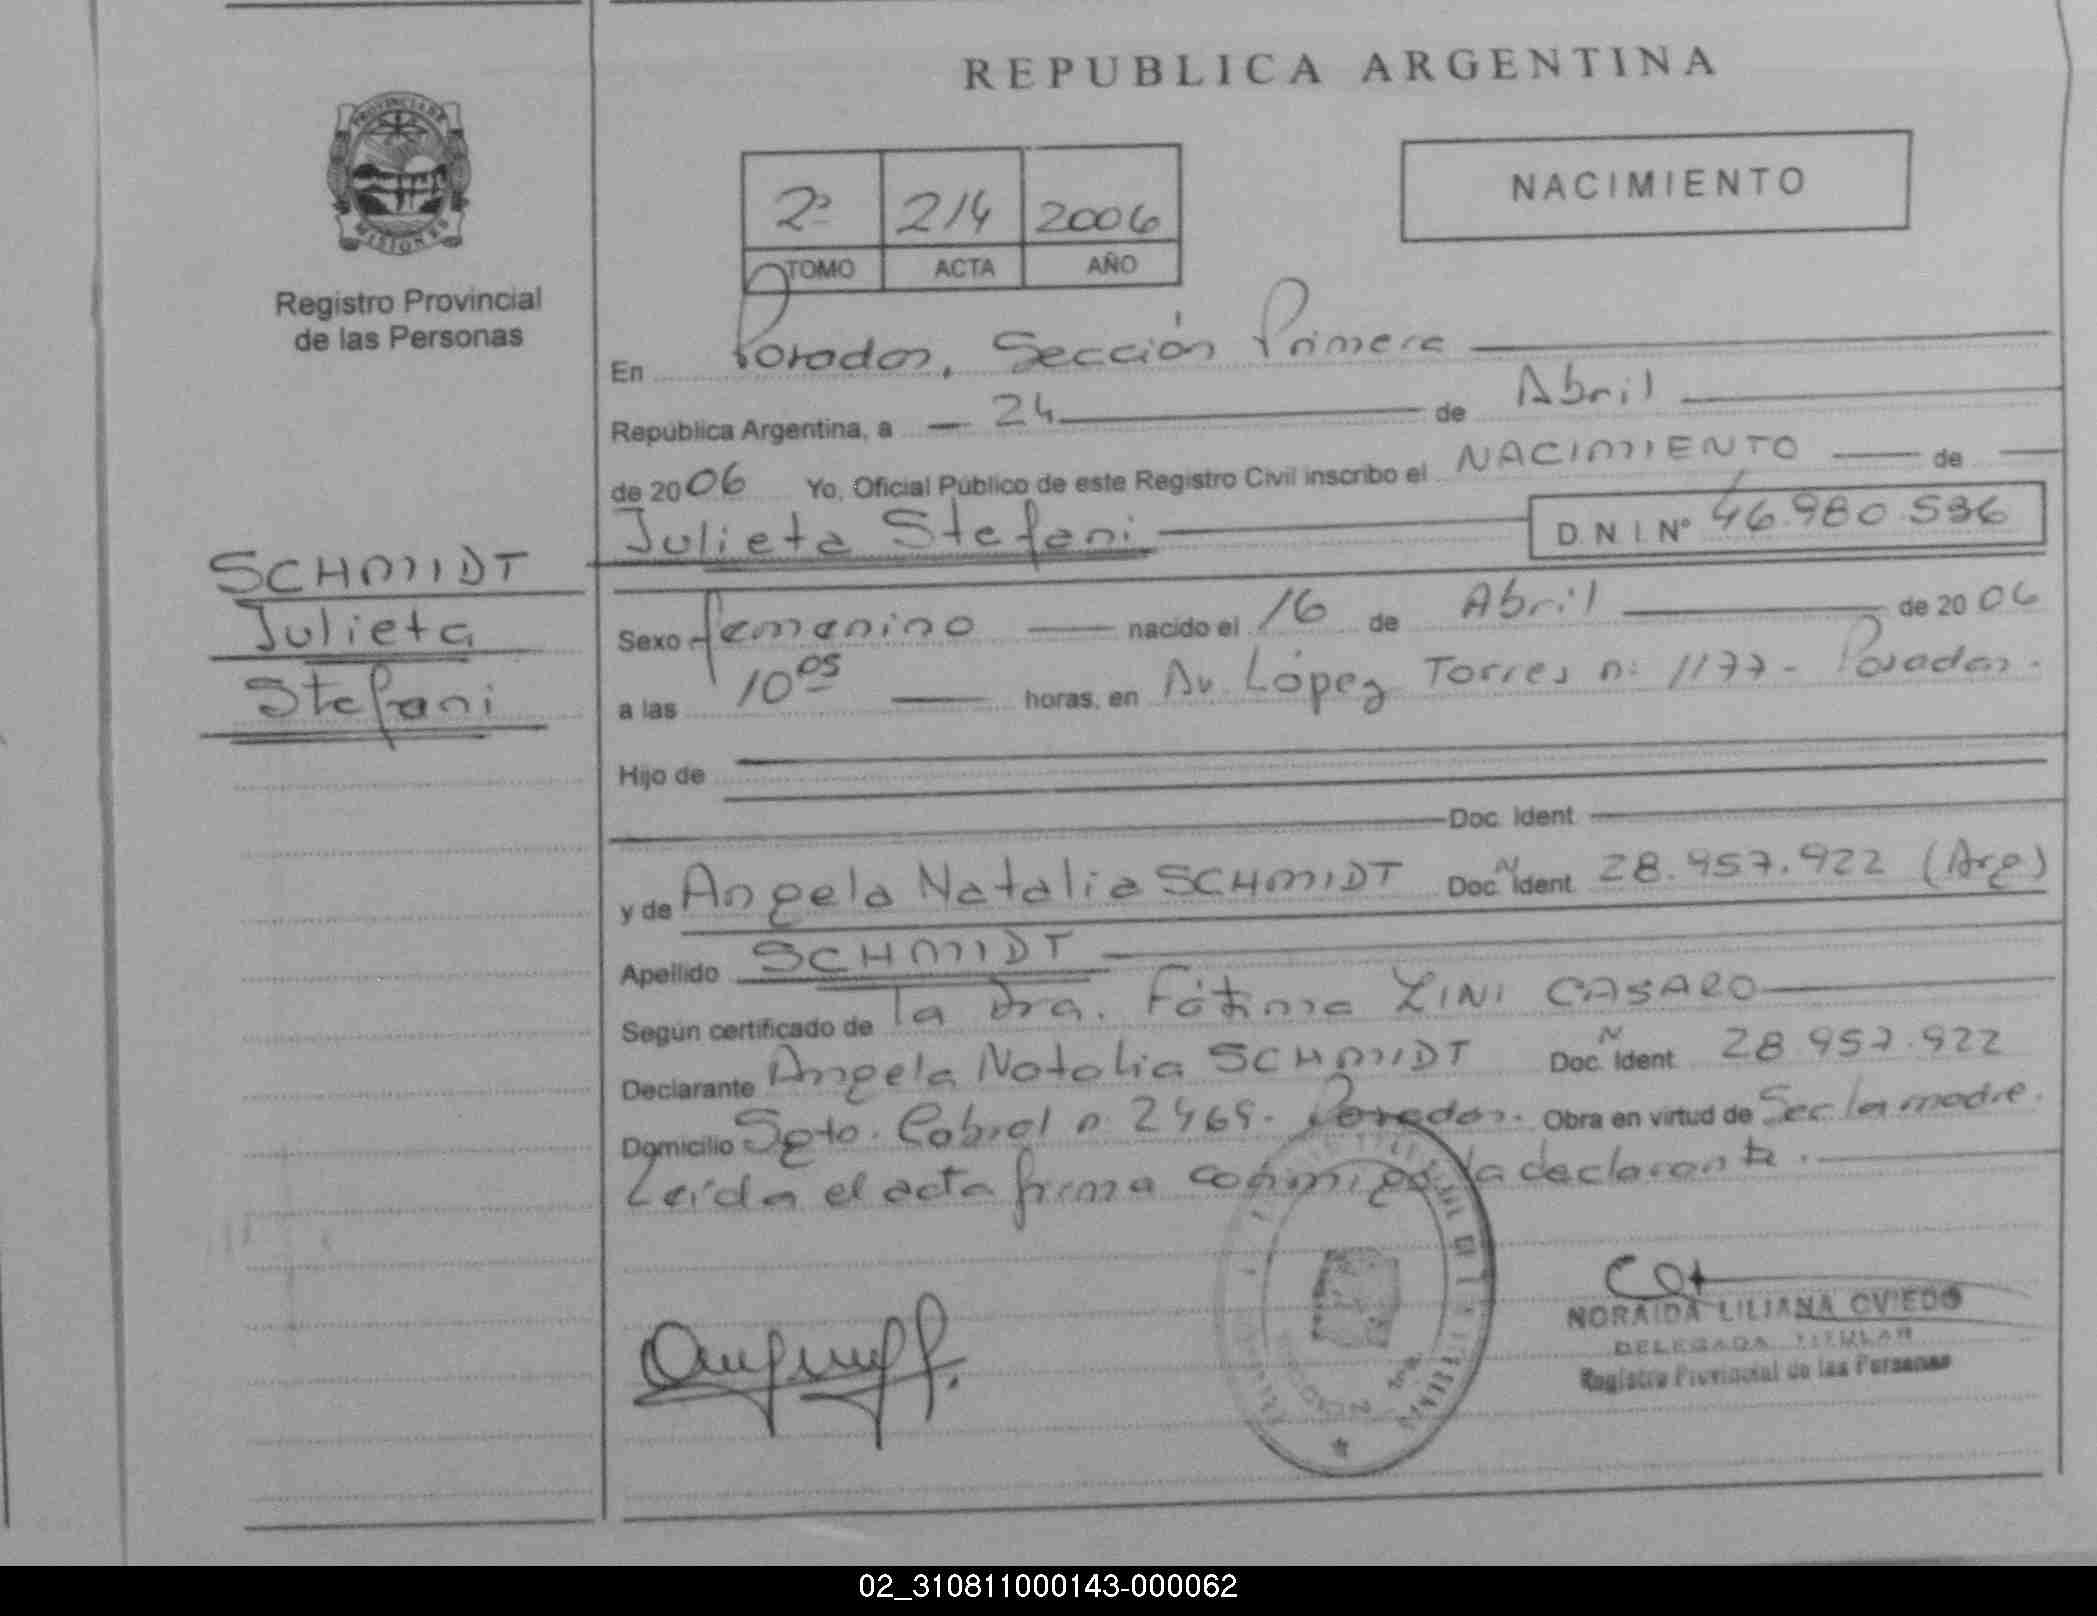 REPUBLICA ARGENTINA
PROVINCIA DE
MISIONES
Registro Provincial
de las Personas
2º 214 2006
TOMO ACTA AÑO
NACIMIENTO
En Posadas, Sección Primera
República Argentina, a 24 de Abril
de 2006 Yo, Oficial Público de este Registro Civil inscribo el NACIMIENTO de
Julieta Stefani D N I Nº 46.980.536
SCHMIDT
Julieta
Stefani
Sexo femenino nacido el 16 de Abril de 2006
a las 10 05 horas, en Av. López Torres n: 1177- Posadas.
Hijo de
Doc. Ident
y de Angela Natalia SCHMIDT Doc. N Ident. 28.957.922 (Arg)
Apellido SCHMIDT
Según certificado de la Dra. Fátima ZINI CASARO
Declarante Angela Natalia SCHMIDT Doc. N Ident. 28.957.922
Domicilio Sgto. Cabral n 2469- Posadas. Obra en virtud de Ser la madre.
Leída el acta firma conmigo la declarante.
NORAIDA LILIANA OVIEDO
DELEGADA TITULAR
Registro Provincial de las Personas
02_310811000143-000062